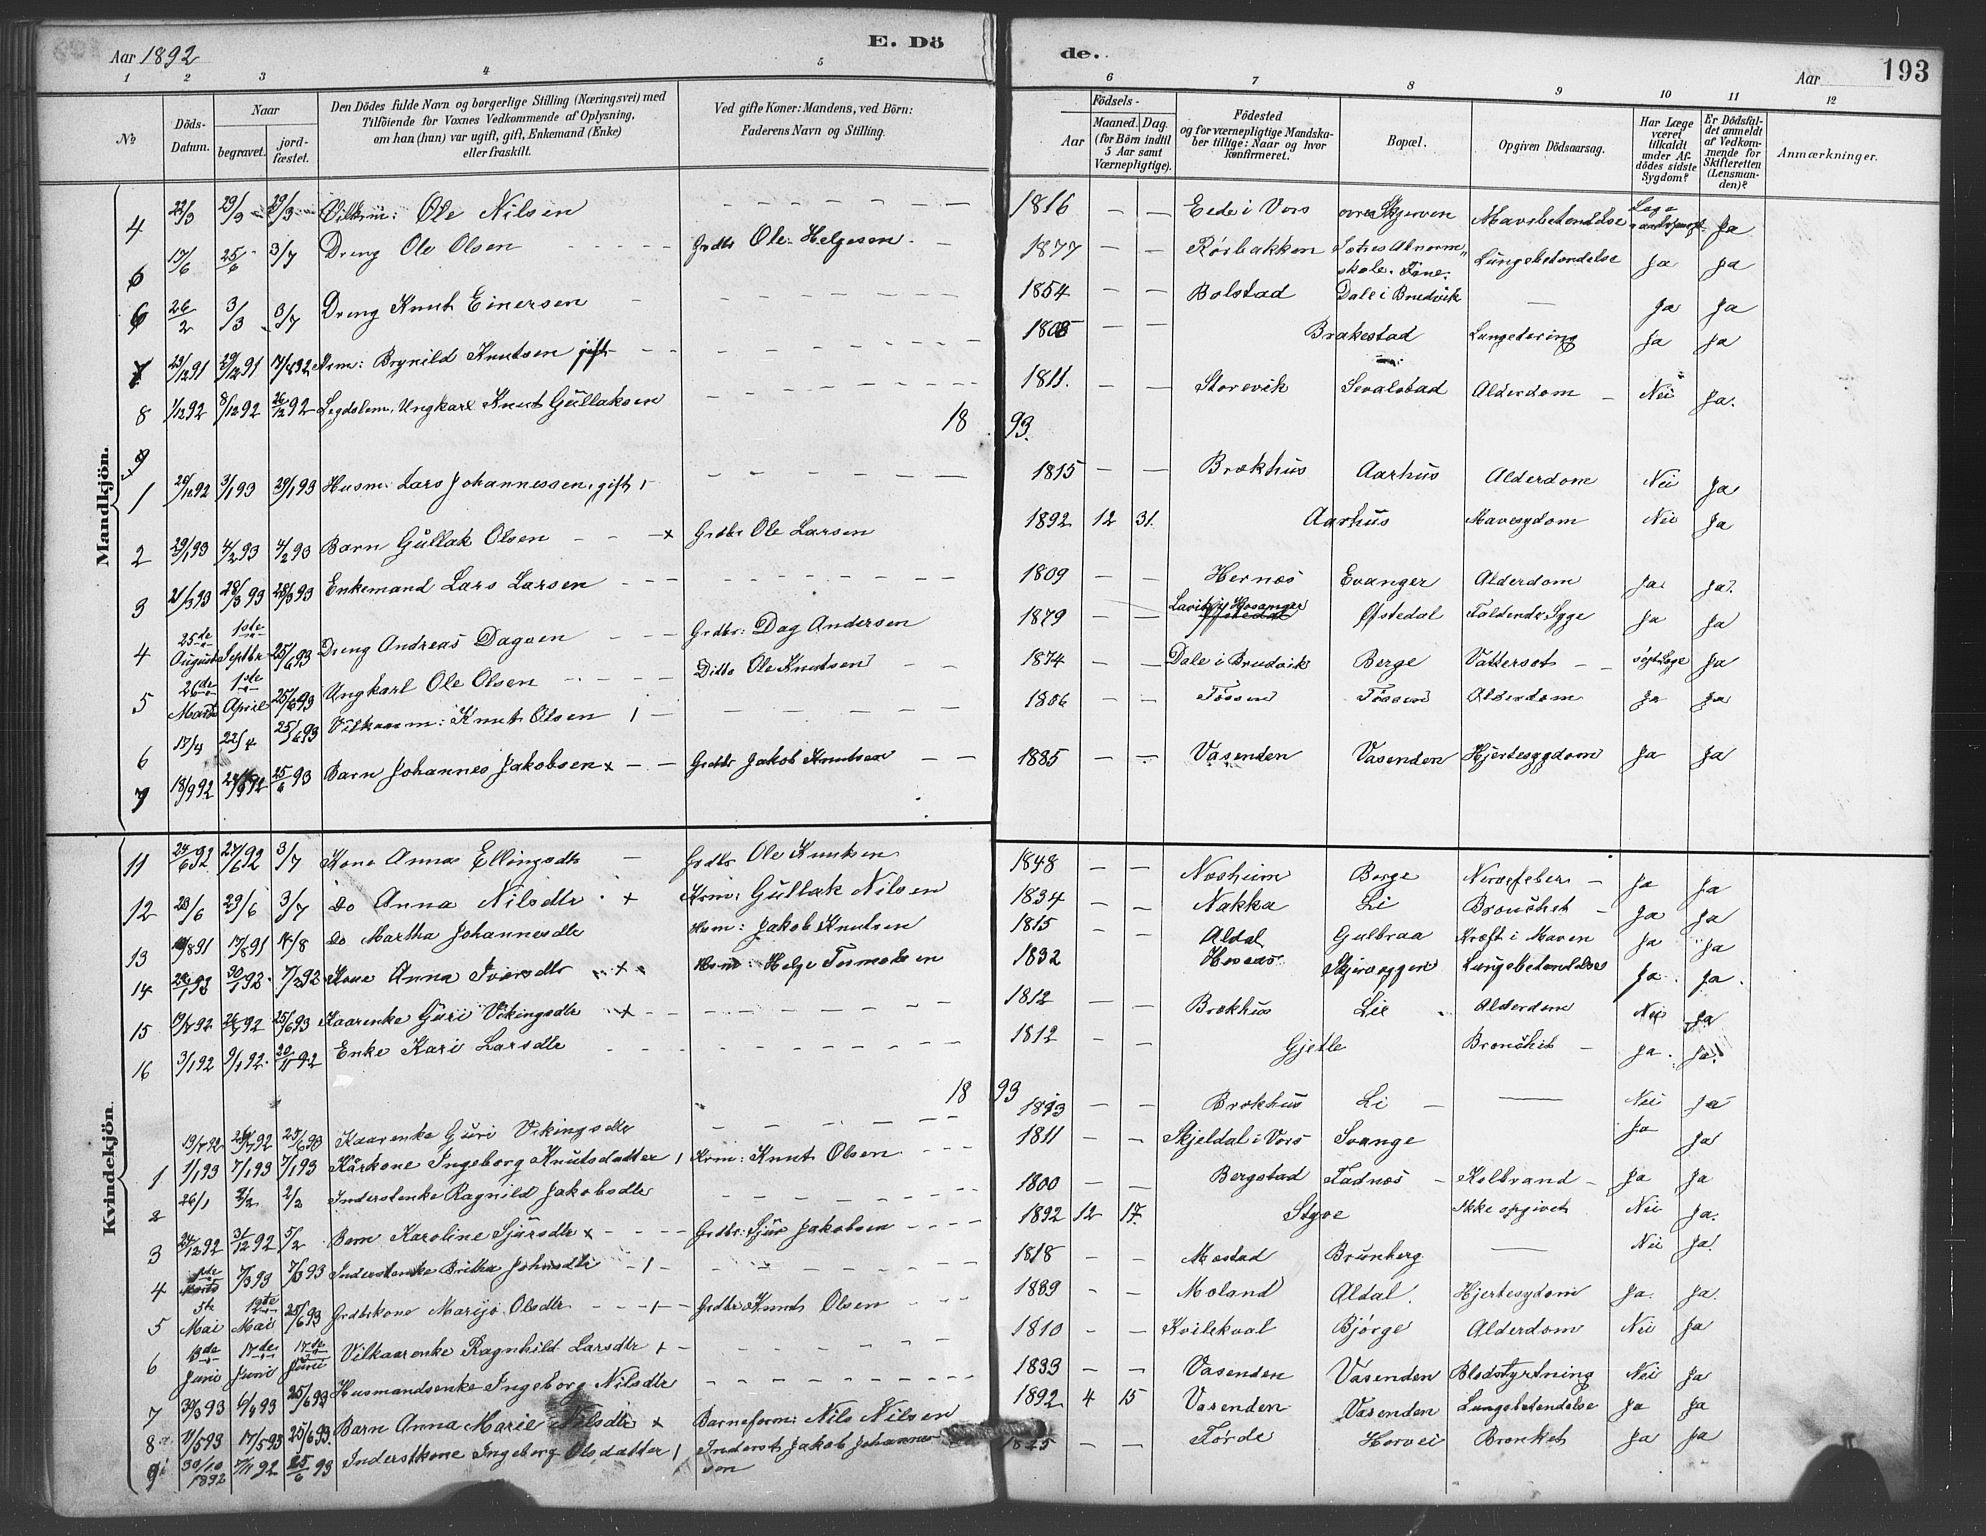 Aar 1892
E. Dö
de.
Aar
193
1 2 3 4 5 6 7 8 9 10 11 12
№
Döds-Datum.
Naar
begravet.
jord-fæstet.
Den Dödes fulde Navn og borgerlige Stilling (Næringsvei) med
Tilföiende for Voxnes Vedkommende af Oplysning,
om han (hun) var ugift, gift, Enkemand (Enke)
eller fraskilt.
Ved gifte Koner: Mandens, ved Börn:
Faderens Navn og Stilling.
Födsels-
Aar
Maaned. Dag.
(for Börn indtil
5 Aar samt
Værnepligtige).
Födested
og for værnepligtige Mandska-
ber tillige: Naar og hvor
konfirmeret.
Bopæl.
Opgiven Dödsaarsag.
Har Læge
været
tilkaldt
under Af-
dödes sidste
Sygdom?
Er Dödsfal-
det anmeldt
af Vedkom-
mende for
Skifteretten
(Lensman-
den)?
Anmærkninger.
Mandkjön.
4 22/3 29/3 29/3 Vilkrm: Ole Nilsen 1816 Eede i Vors Skjerven Mavebetendelse Ja
6 17/6 25/6 3/7 Dreng Ole Olsen Grdbr Ole Helgesen 1877 Rörbakken Abnormskole. Lungebetendelse Ja Ja
6 26/2 3/3 3/7 Dreng Knut Einersen 1854 Bolstad Dale i Brudvik — Ja Ja
7 23/12 91 29/12 91 Brynild Knutsen gift Brakestad Lungetæring Ja Ja
8 1/12 92 8/12 92 26/12 92 Legdslem, Ungkarl Knut Gullaksen 1811. Storevik Sevalstad Alderdom Nei Ja.
18 93.
9
1 29/12 92 3/1 93 29/1 93 Husm: Lars Johannessen, gift 1815 Brækhus Aarhus Alderdom Nei Ja
2 29/1 93 4/2 93 4/2 93 Barn Gullak Olsen x Grdbr Ole Larsen 1892 12 31. Aarhus Mavesygdom Nei Ja
3 21/3 93 28/3 93 28/3 93 Enkemand Lars Larsen 1809 Hernæs Evanger Alderdom Ja Ja.
4 25de August 1ste Septbr 25/6 93 Dreng Andreas Dagsen Grdbr: Dag Andersen 1879 Hosanger Øfstedal Øfstedal Faldende Syge Ja Ja
5 26de Marts 1ste April 25/6 93 Ungkarl Ole Olsen Ditto Ole Knutsen 1874 Dale i Brudvik Berge Vattersot Ja
6 17/4 22/4 25/6 93 Vilkaarm: Knut Olsen 1806 Tössen Tössen Alderdom Ja Ja
7 18/9 92 25/6 93 Barn Johannes Jakobsen x Grdbr Jakob Knutsen 1885 Vasenden Vasenden Hjertesygdom Ja Ja
Kvindekjön.
11 24/6 92 27/6 92 3/7 Kone Anna Ellingsdtr Grdbr Ole Knutsen 1848 Nesheim Berge Nervefeber Ja Ja
12 23/6 29/6 3/7 Do Anna Nilsdtr x Krm: Gullak Nilsen 1834 Nakka Li Bronshit Ja Ja
13 17/8 91 14/8 Do Martha Johannesdtr Hsm: Jakob Knutsen 1815 Aldal Gulbraa Kræft i Maven Ja Ja
14 30/1 92 7/2 92 Kone Anna Iversdtr x Hsm: Helge Tormodsen 1832 Lungebetendelse Ja Ja
15 19/7 92 26/7 92 25/6 93 Kaarenke Guri Vikingsdtr x 1812 Brækhus Lie Alderdom Nei Ja
16 3/1 92 9/1 92 20/11 92 Enke Kari Larsdtr 1812 Gjetle Bronshit Ja Ja
18 93
19/7 92 26/7 92 25/6 93 Kaarenke Guri Vikingsdtr 1813 Brækhus Li — Nei Ja
1 1/1 93 7/1 93 7/1 93 Kårkone Ingeborg Knutsdatter Krm: Knut Olsen 1811 Skjeldal i Vors Svange Ja Ja
2 26/1 2/2 2/2 Inderstenke Ragnild Jakobsdtr 1800 Bergstad Fadnæs Kolbrand Ja Ja
3 24/12 92 31/12 92 5/2 Barn Karoline Sjursdtr x Grdbr: Sjur Jakobsen 1892 12 17. Styve Ikke opgivet Nei Ja.
4 1ste Marts 7/3 93 7/3 93 Inderstenke Britha Johnsdtr 1818 Mæstad Brunberg — Nei Ja.
5 5te Mai 12te Mai 25/6 93 Grdbrkone Marijo Olsdtr Grdbr Knut Olsen 1839 Moland Aldal. Hjertesygdom Ja. Ja.
6 13de Juni 17de Juni 17de Juni Vilkaarenke Ragnhild Larsdtr 1810 Kvilekval Bjørge Alderdom Nei Ja
7 30/3 93 6/4 93 25/6 93 Husmandsenke Ingeborg Nilsdtr 1833 Vasenden Vasenden Blodstyrtning Nei Ja
8 11/5 93 17/5 93 25/6 93. Barn Anna Marie Nilsdtr x Barneform: Nils Nilsen 1892 4 15 Vasenden Vasenden Lungebetendelse Ja Ja
9 30/10 1892 7/11 92 25/6 93 Inderstkone Ingeborg Olsdatter Inderst Jakob Johannessen Førde Horvei Bronket Ja Ja